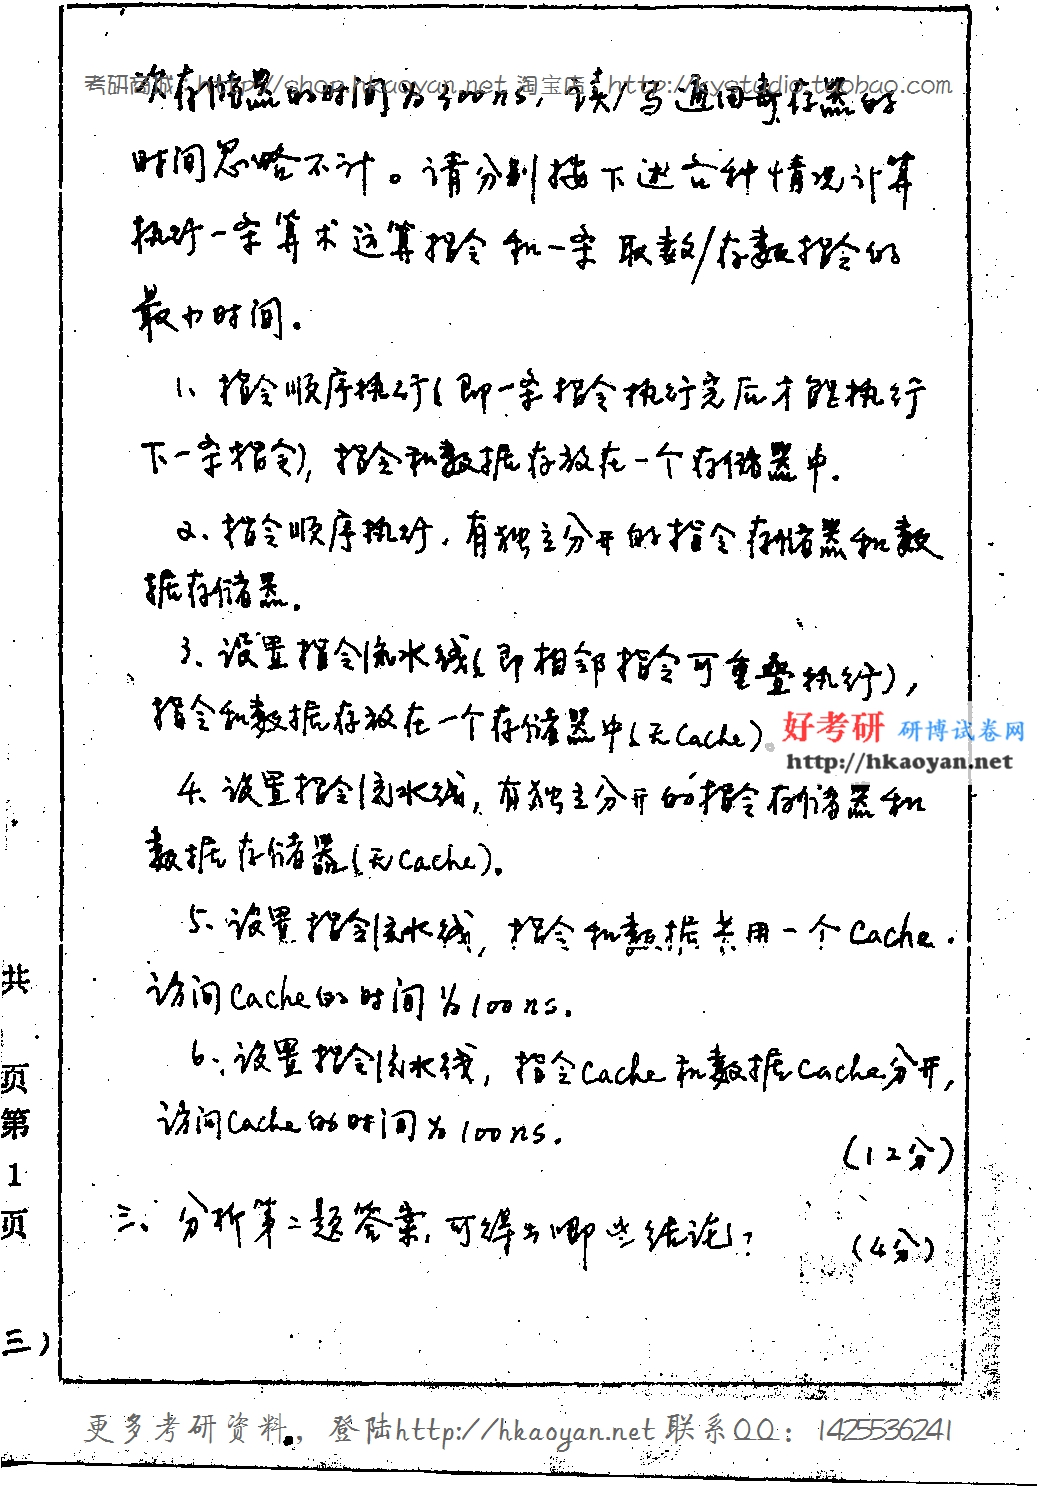 考研商城：http://shop.hkaoyan.net 淘宝店：http://kystudio.taobao.com
次存储器的时间为400ns，读/写通用寄存器的
时间忽略不计。请分别按下述各种情况计算
执行一条算术运算指令和一条取数/存数指令的
最小时间。
1、指令顺序执行(即一条指令执行完后才能执行
下一条指令)，指令和数据存放在一个存储器中.
2、指令顺序执行，有独立分开的指令存储器和数
据存储器。
3、设置指令流水线(即相邻指令可重叠执行)，
指令和数据存放在一个存储器中(无Cache)。
好考研 研博试卷网
http://hkaoyan.net
4、设置指令流水线，有独立分开的指令存储器和
数据存储器(无Cache)。
5、设置指令流水线，指令和数据共用一个Cache.
访问Cache的时间为100ns.
6、设置指令流水线，指令Cache和数据Cache分开，
访问Cache的时间为100ns.
(12分)
三、分析第二题答案，可得出哪些结论？
(4分)
共
页
第
1
页
三)
更多考研资料，登陆http://hkaoyan.net 联系QQ：1425536241